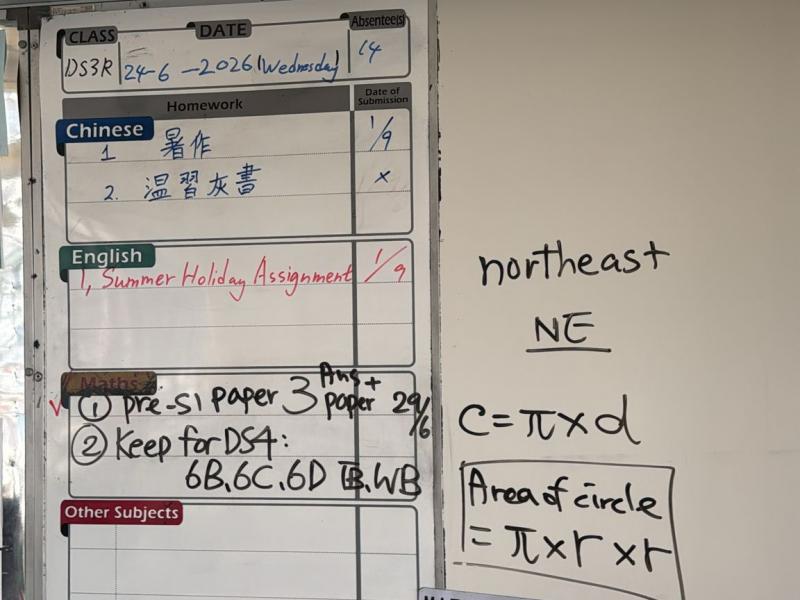 CLASS DATE Absentee(s)
DS3R 24-6-2026 (Wednesday) 14
Homework Date of Submission
Chinese
1 暑作 1/9
2. 温習灰書 x
English
1, Summer Holiday Assignment 1/9
Maths
✓ ① pre-S1 paper 3 Ans + paper 29/6
② Keep for DS4:
6B, 6C, 6D TB, WB
Other Subjects
northeast
NE
C = π × d
Area of circle
= π × r × r